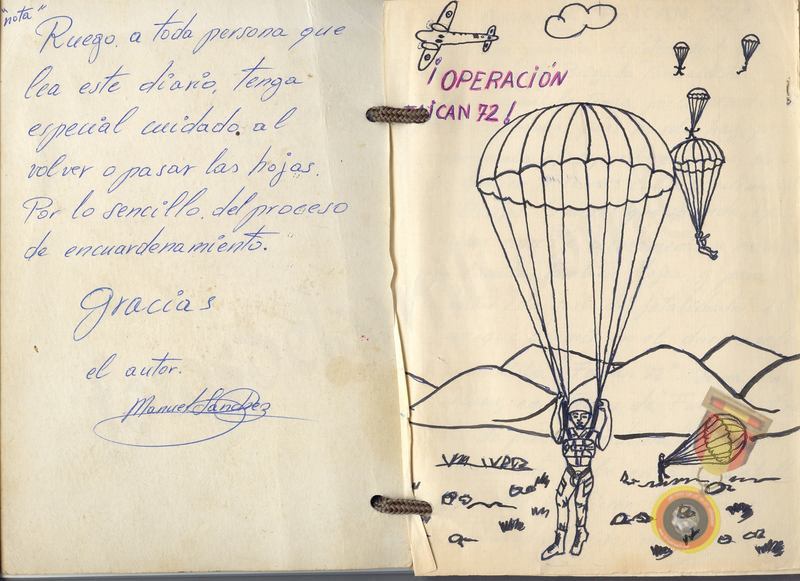 "nota"
Ruego. a toda persona que
lea este diario, tenga
especial cuidado, al
volver o pasar las hojas.
Por lo sencillo, del proceso
de encuardenamiento.
Gracias
el autor.
Manuel Sánchez
¡OPERACIÓN
CAN 72!